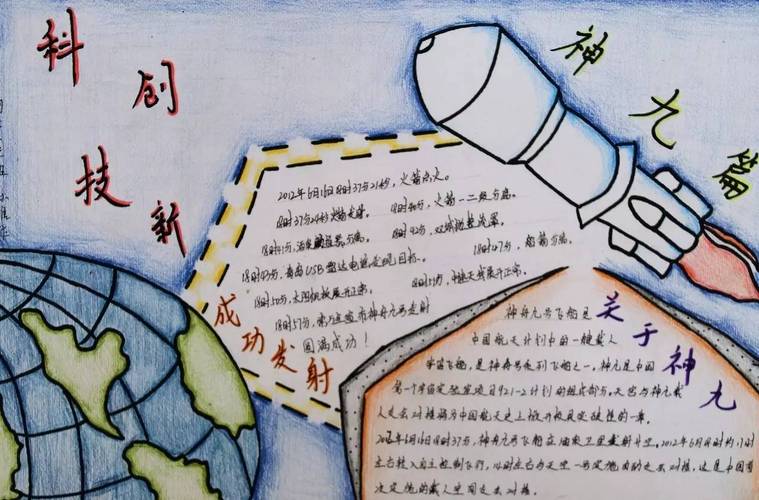 科
创
技
新
神
九
篇
2012年6月16日18时37分21秒，火箭点火。
18时37分24秒火箭起飞。
18时40分，火箭一二级分离。
18时41分，
18时42分，
18时47分，船箭分离。
18时43分，青岛USB雷达电磁发现目标。
18时50分，太阳帆板展开正常。
圆满成功！
成
功
发
射
关
于
神
九
神舟九号飞船是
中国航天计划中的一艘载人
宇宙飞船，是神舟号系列飞船之一。神九是中国
第一个宇宙实验室项目921-2计划的组成部分，天宫与神九载
人交会对接将为中国航天史上掀开极具突破性的一章。
2012年6月16日18时37分，神舟九号飞船在酒泉卫星发射升空。2012年6月18日时约11时
左右转入自主控制飞行，14时左右与天宫一号实施自动交会对接，这是中国首
次实施的载人空间交会对接。